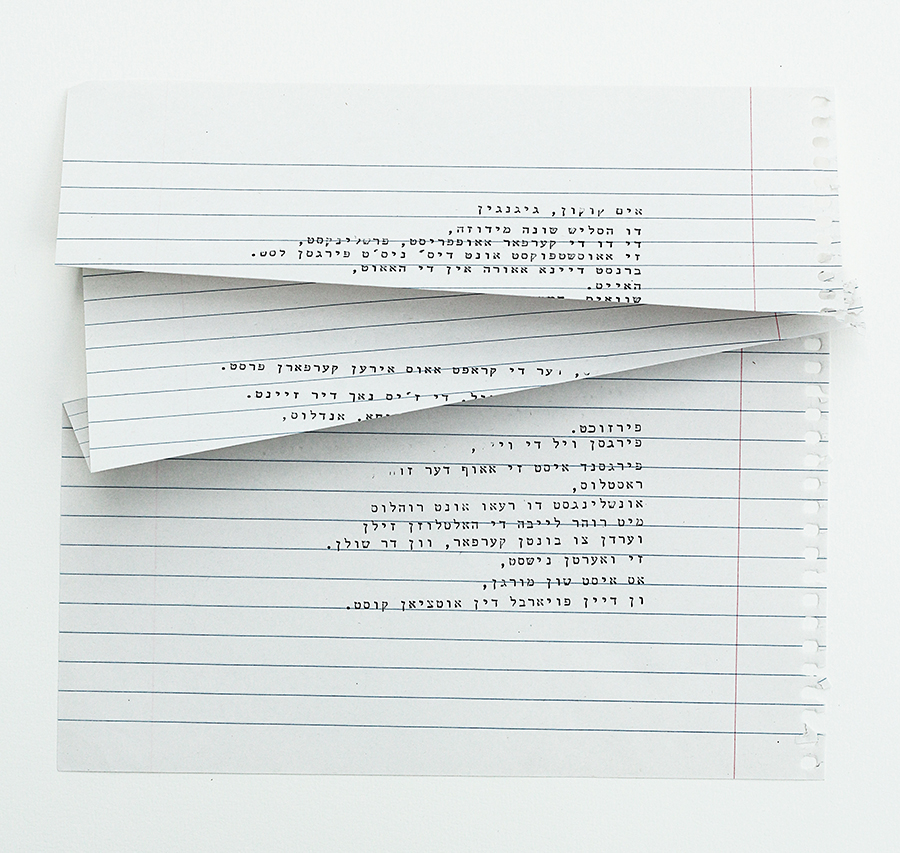 אים קוקון, גיגנגין
דו הסליש שונה מידוזה,
די דו די קערפאר אאופפריסט, פרשלינקסט,
זי אאוסשטפוקסט אונט דיס´ ניס´ט פירגסן לסט.
ברנסט דיינא אאורה אין די האאוט,
האייט.
שוואים
וער די קראפט אאוס אירען קערפארן פרסט.
די ז´יס נאך דיר זיינט.
אנדלוס,
פירזוכט.
פירגסן ויל די
פירגסנד איסט זי אאוף דער
ראסטלוס,
אונשלינגסט דו רעאו אונט רוהלוס
מיט רוהר לייבה די האלטלוזן זילן
וערדן צו בונטן קערפאר, וון דר שולן.
זי ואערטן נישסט,
אס איסט שון מורגן,
ון דיין פויארבל דין אוטציאן קוסט.